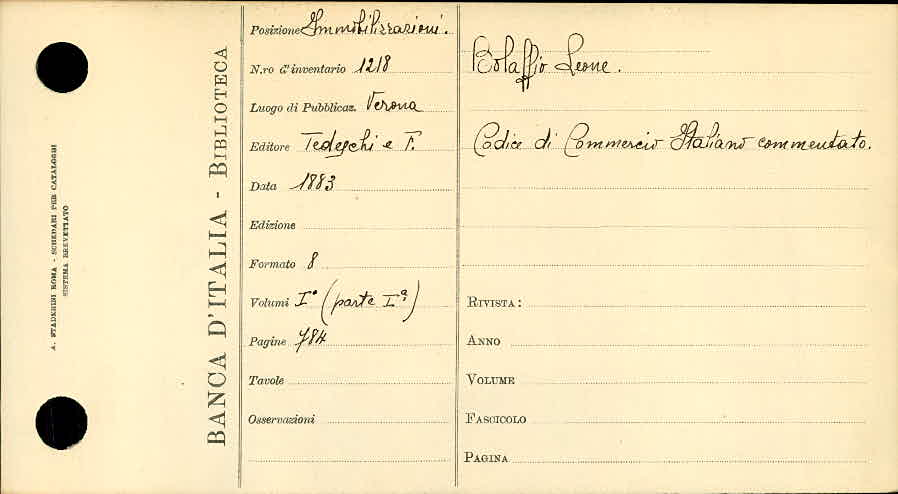 A. STADERINI ROMA - SCHEDARI PER CATALOGHI
SISTEMA BREVETTATO
BANCA D'ITALIA - BIBLIOTECA
Posizione Immobilizzazioni.
N.ro d'inventario 1218
Luogo di Pubblicaz. Verona
Editore Tedeschi e F.
Data 1883
Edizione
Formato 8
Volumi I° (parte Iª)
Pagine 784
Tavole
Osservazioni
Bolaffio Leone.
Codice di Commercio Italiano commentato.
RIVISTA:
ANNO
VOLUME
FASCICOLO
PAGINA